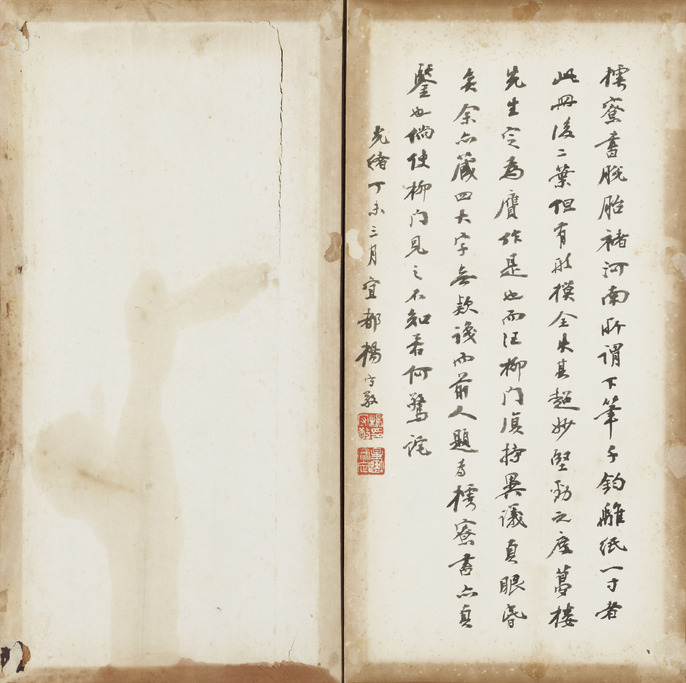 樗寮書脫胎褚河南所謂下筆千鈞離紙一寸者
此冊後二葉但有形模全失其超妙堅勁之度夢樓
先生定為贗作是也而汪柳門復持異議真眼昏
矣余亦藏四大字無款識而前人題為樗寮書亦真
鑒也倘使柳門見之不知若何驚詫
光緒丁未三月宜都楊守敬